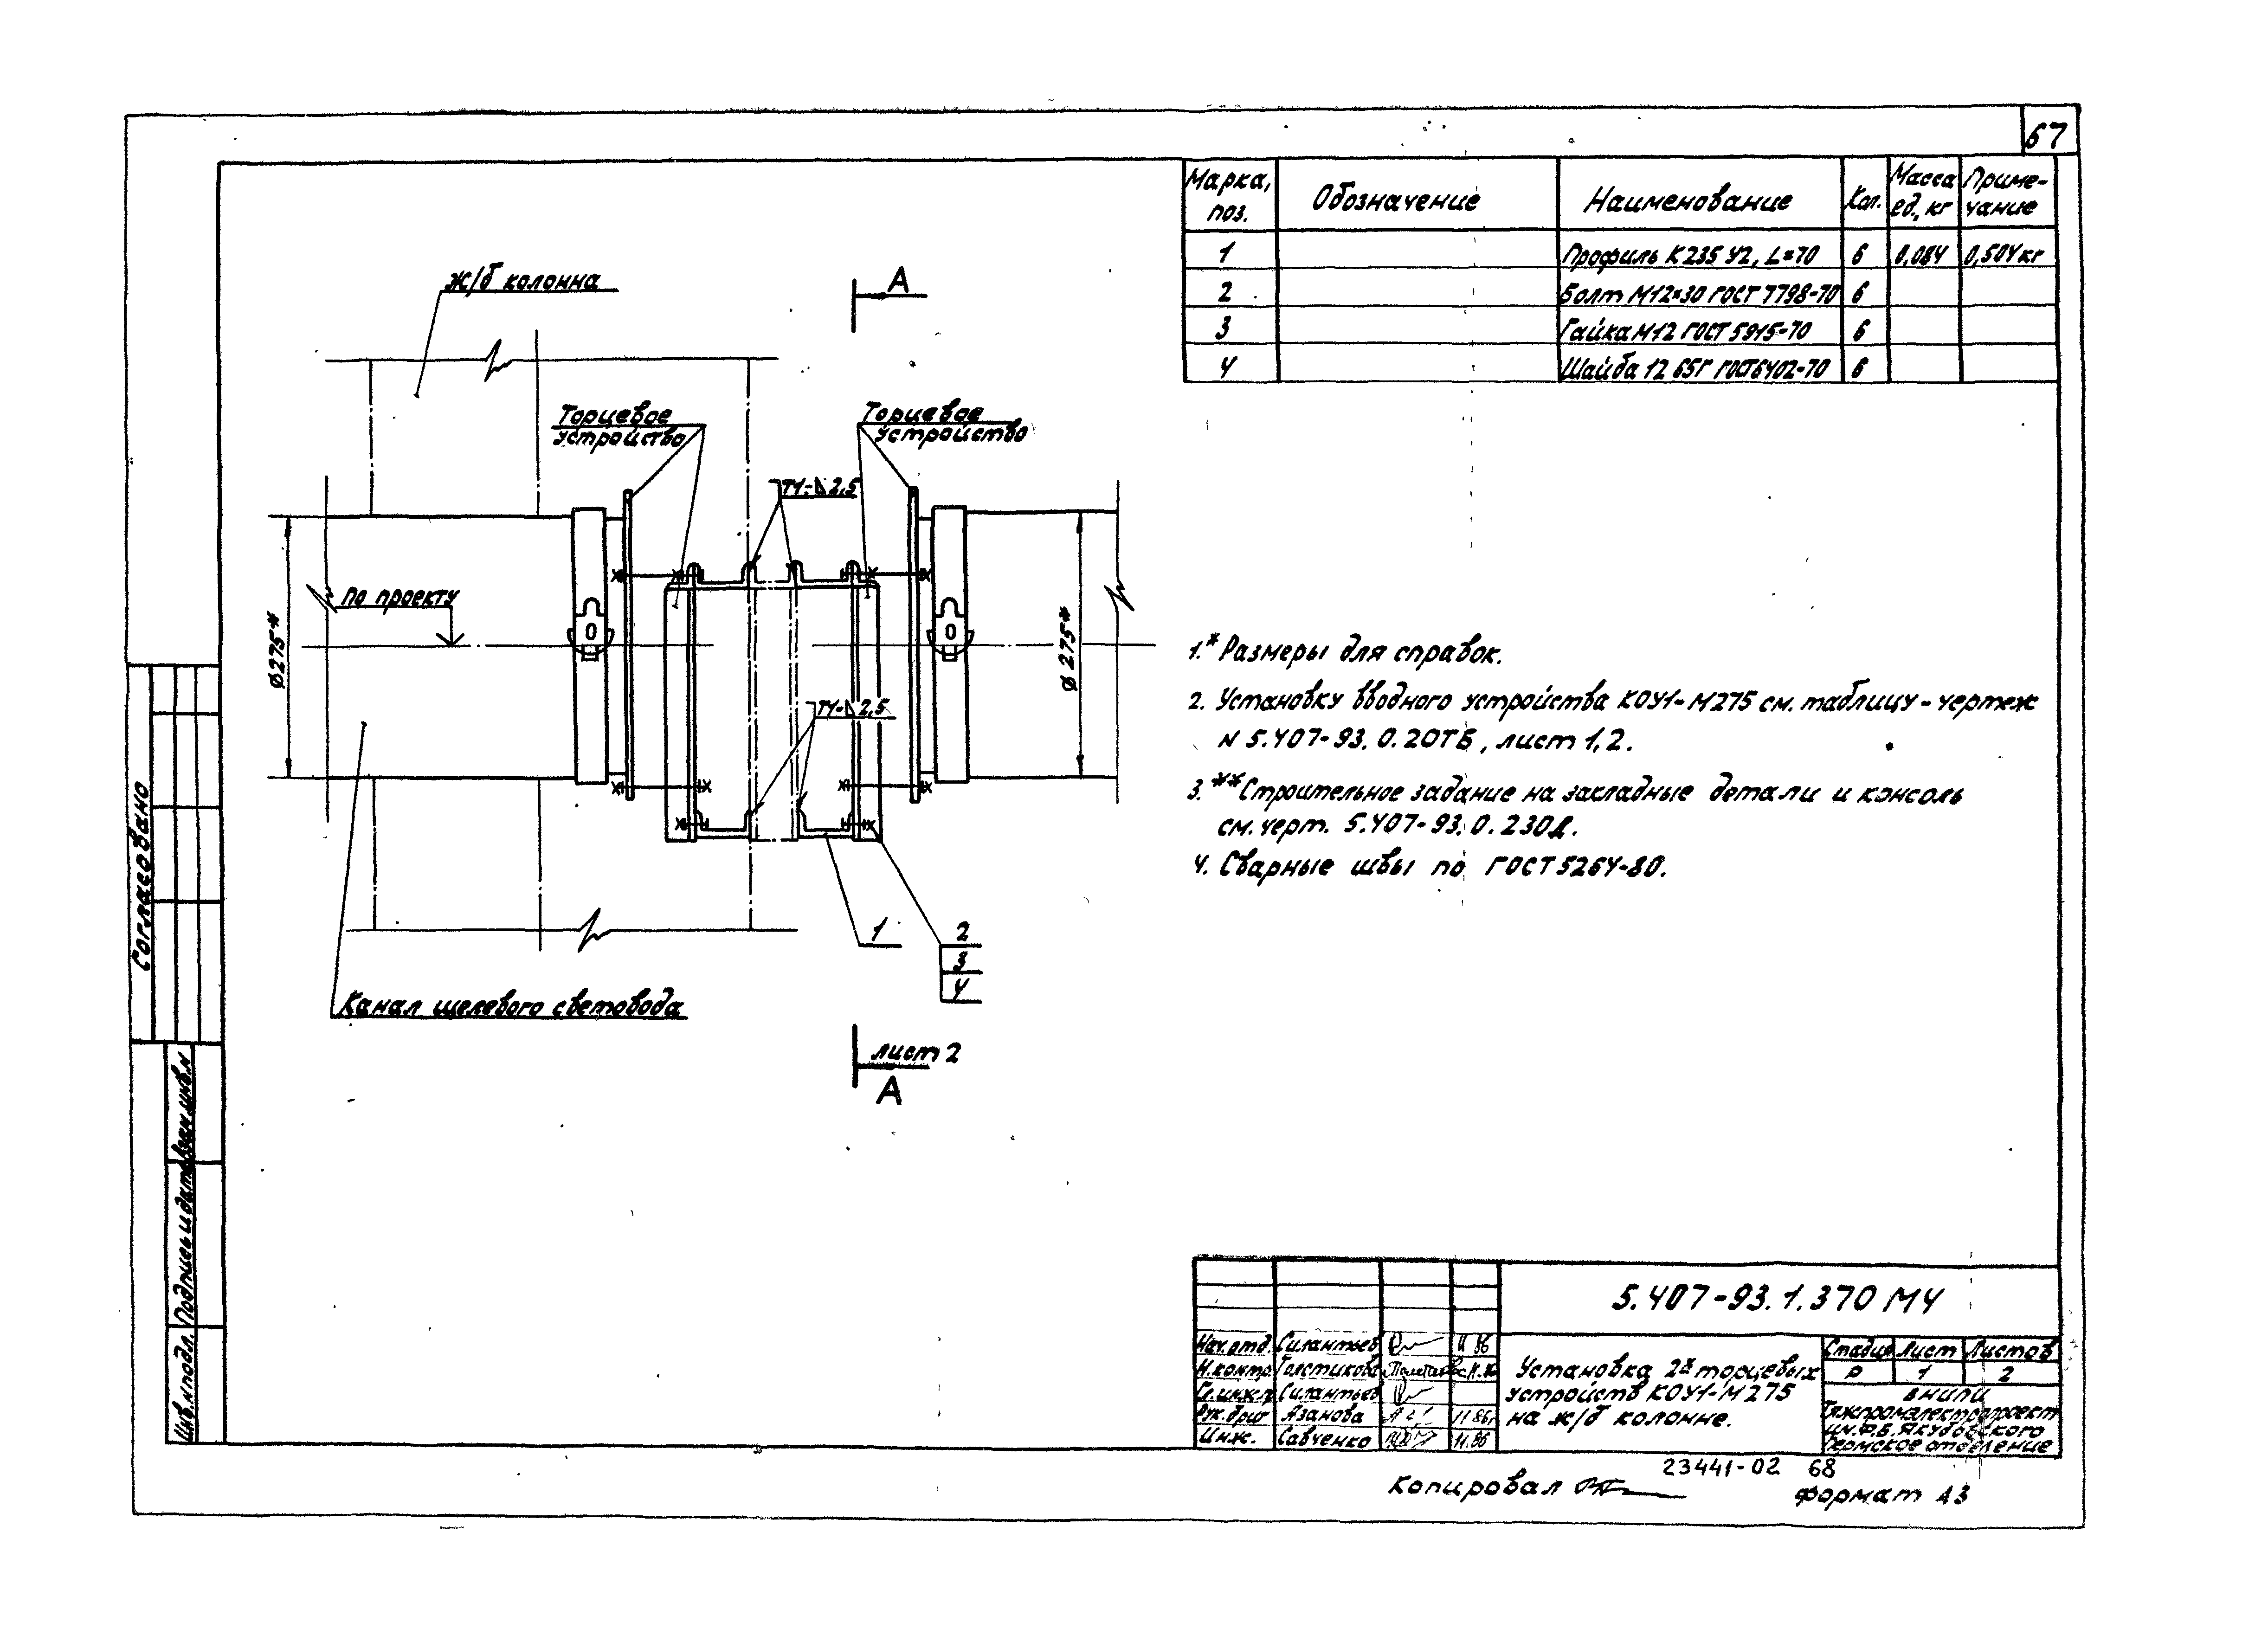 67
Марка, поз. Обозначение Наименование Кол. Масса ед., кг Приме-чание
1 Профиль К235 У2, L=70 6 0,084 0,504кг
2 Болт М12×30 ГОСТ 7798-70 6
3 Гайка М12 ГОСТ 5915-70 6
4 Шайба 12 65Г ГОСТ6402-70 6
ж/б колонна
А
Торцевое
устройство
Торцевое
устройство
Т1-⊿2,5
По проекту
⌀275*
⌀275*
Т1-⊿2,5
1
2
3
4
Канал щелевого световода
лист 2
А
1.* Размеры для справок.
2. Установку вводного устройства КОУ1-М275 см. таблицу-чертеж
N 5.407-93.0.20ТБ, лист 1,2.
3.** Строительное задание на закладные детали и консоль
см. черт. 5.407-93.0.230Д.
4. Сварные швы по ГОСТ 5264-80.
Согласовано
Инв.N подл. Подпись и дата Взам.инв.N
5.407-93.1.370 МЧ
Нач.отд. Силантьев 11 86
Н.контр. Толстикова
Гл.инж.п Силантьев
Рук.бриг Азанова 11.86г
Инж. Савченко 11.86
Установка 2х торцевых
устройств КОУ1-М275
на ж/б колонне.
Стадия Лист Листов
Р 1 2
ВНИПИ
Тяжпромэлектропроект
им.Ф.Б.Якубовского
Пермское отделение
23441-02 68
Копировал
формат А3